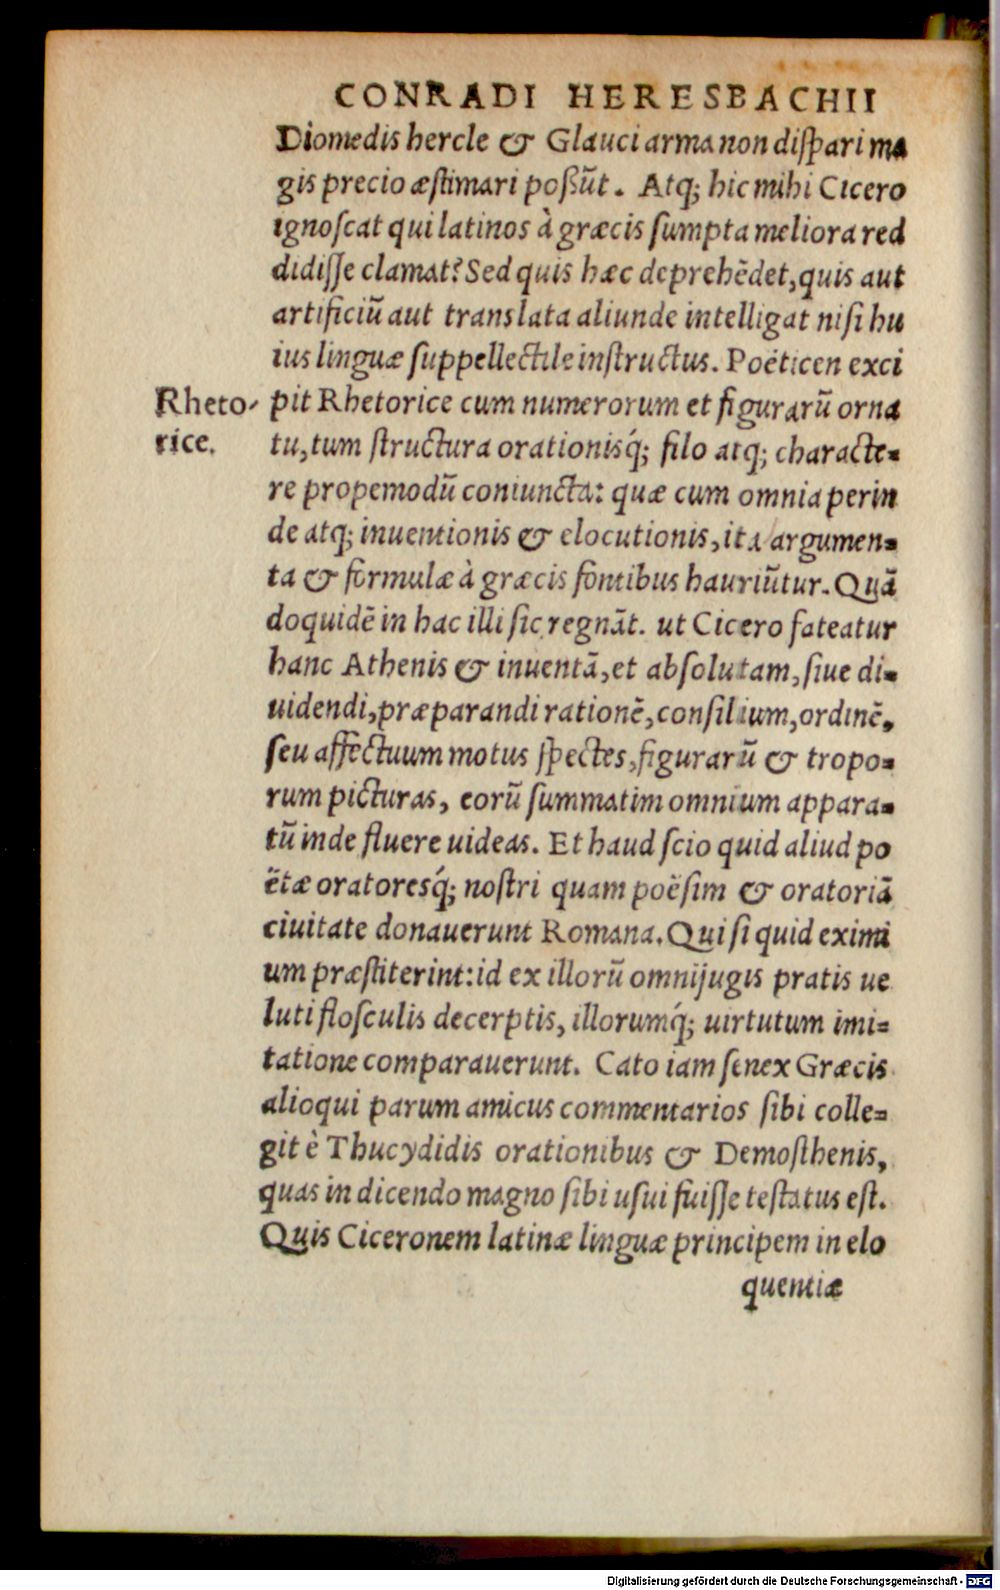 CONRADI HERESBACHII
Diomedis hercle & Glauci arma non diſpari ma
gis precio æſtimari poßūt. Atq; hic mihi Cicero
ignoſcat qui latinos à græcis ſumpta meliora red
didiſſe clamat? Sed quis hæc deprehēdet, quis aut
artificiū aut translata aliunde intelligat niſi hu
ius linguæ ſuppellectile inſtructus. Poëticen exci
Rheto-
rice.
pit Rhetorice cum numerorum et figurarū orna
tu, tum ſtructura orationisq́; filo atq; characte-
re propemodū coniuncta: quæ cum omnia perin
de atq; inuentionis & elocutionis, ita argumen-
ta & formulæ à græcis fontibus hauriūtur. Quā
doquidē in hac illi ſic regnāt. ut Cicero fateatur
hanc Athenis & inuentā, et abſolutam, ſiue di-
uidendi, præparandi rationē, conſilium, ordinē,
ſeu affectuum motus ſpectes, figurarū & tropo-
rum picturas, eorū ſummatim omnium appara-
tū inde fluere uideas. Et haud ſcio quid aliud po
ëtæ oratoresq́; noſtri quam poëſim & oratoriā
ciuitate donauerunt Romana. Qui ſi quid eximi
um præſtiterint: id ex illorū omnijugis pratis ue
luti floſculis decerptis, illorumq́; uirtutum imi-
tatione comparauerunt. Cato iam ſenex Græcis
alioqui parum amicus commentarios ſibi colle-
git è Thucydidis orationibus & Demoſthenis,
quas in dicendo magno ſibi uſui fuiſſe teſtatus eſt.
Quis Ciceronem latinæ linguæ principem in elo
quentiæ
Digitalisierung gefördert durch die Deutsche Forschungsgemeinschaft - DFG